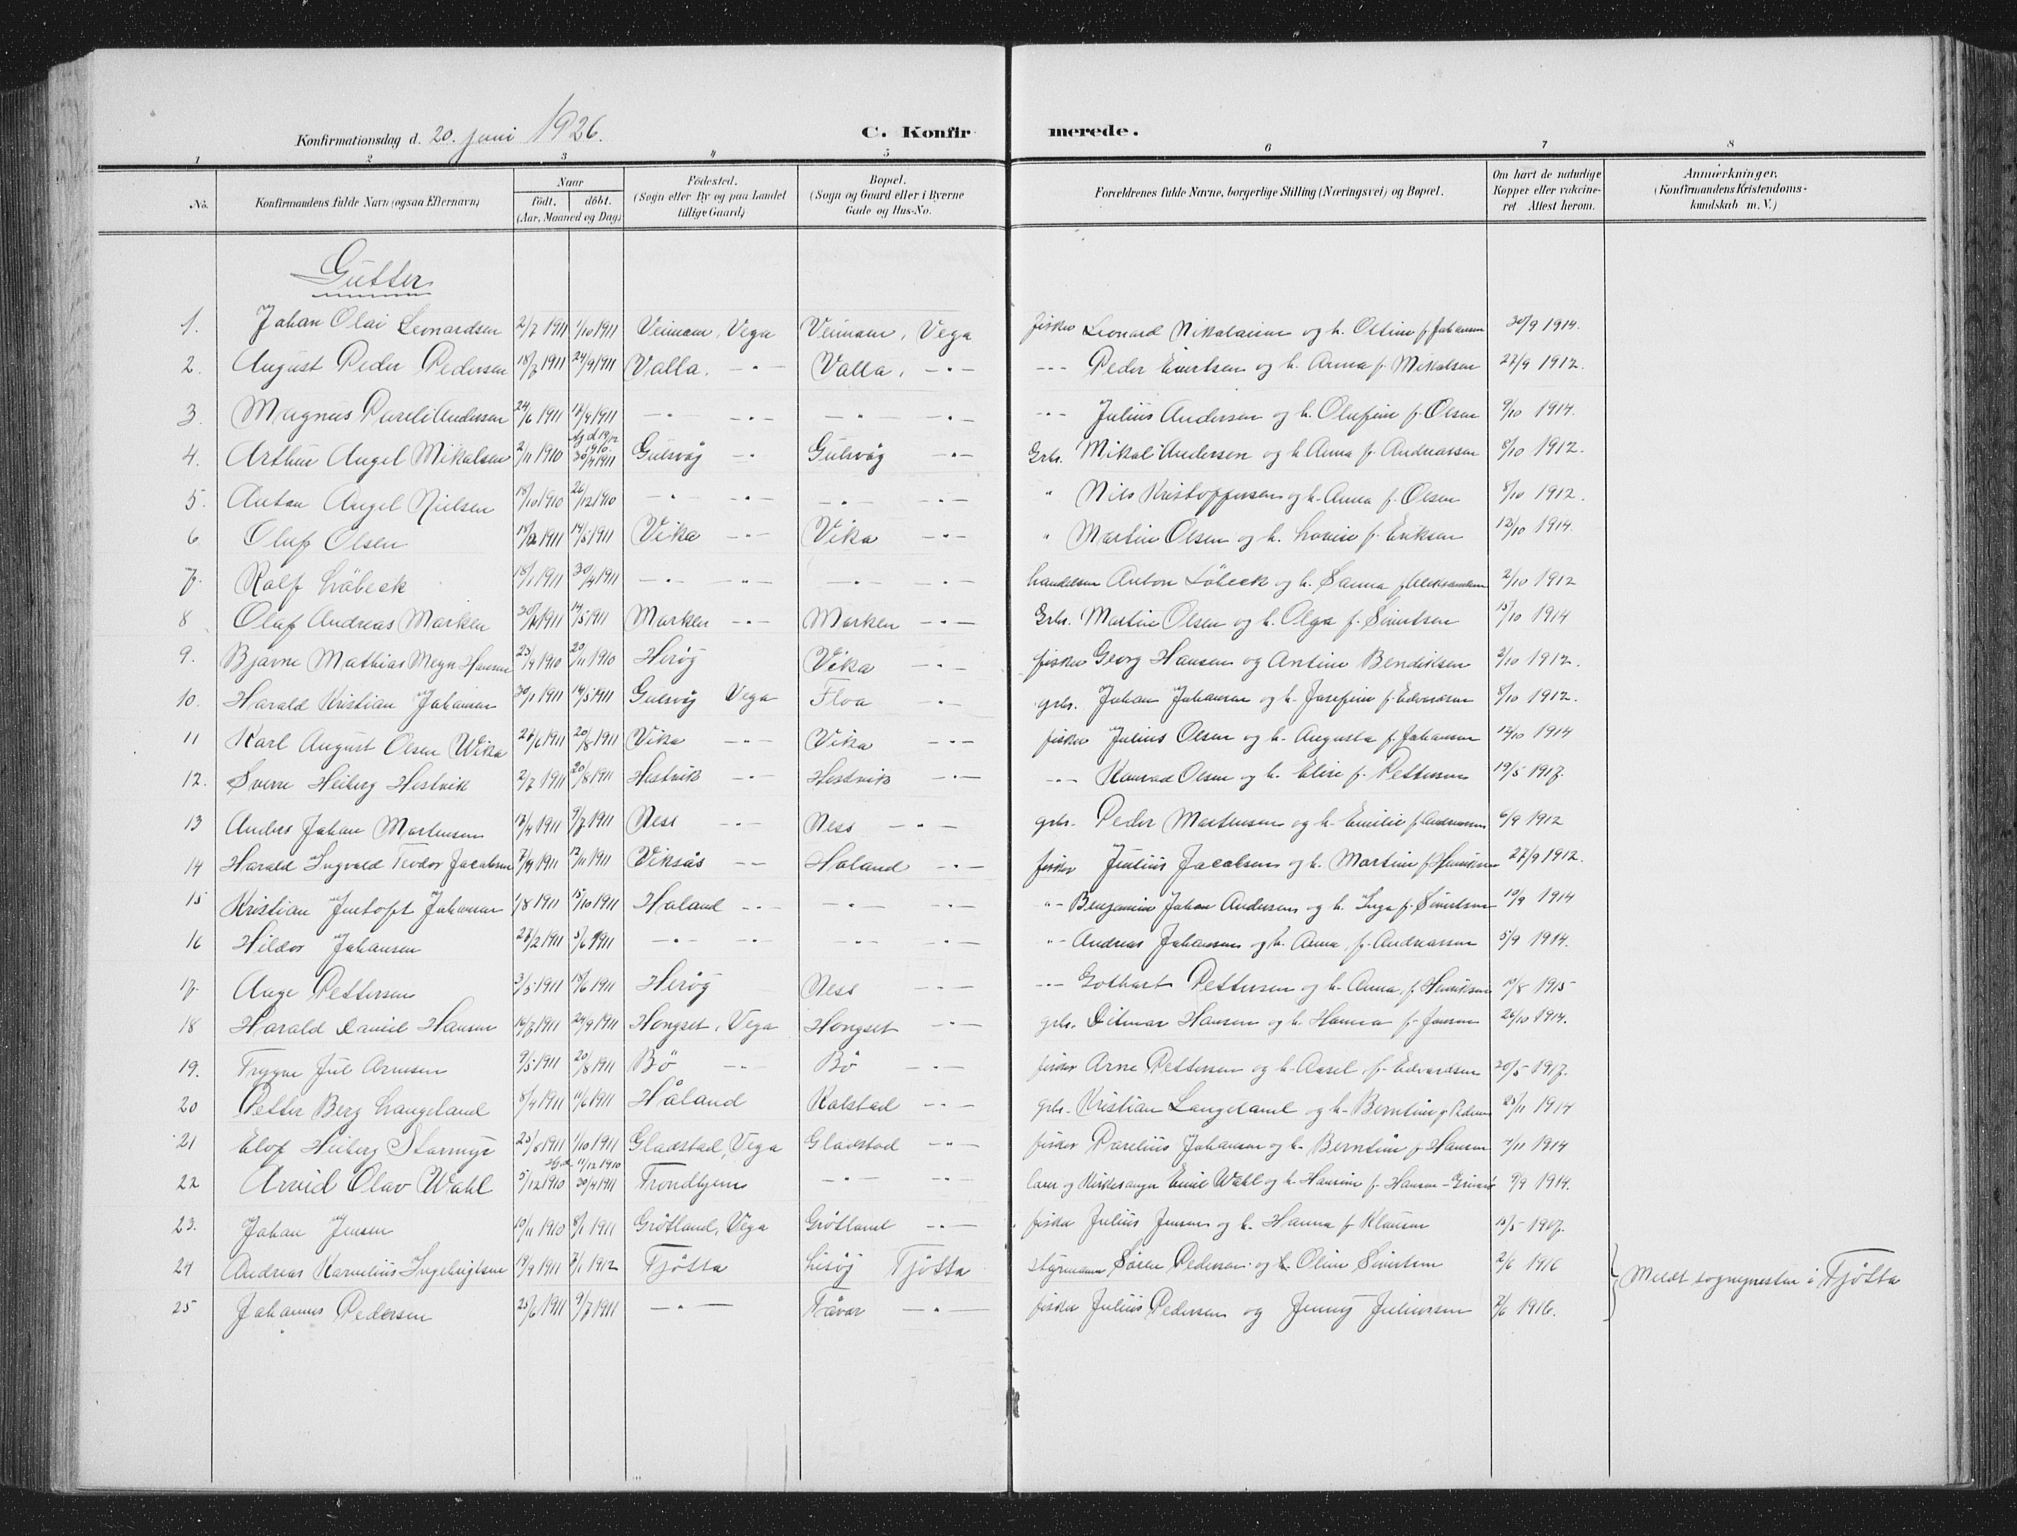 Konfirmationsdag d. 20. juni 1926.
C. Konfirmerede.
1 2 3 4 5 6 7 8
No. Konfirmandens fulde Navn (ogsaa Efternavn) Naar født. døbt. (Aar, Maaned og Dag) Födested. (Sogn eller By og paa Landet tillige Gaard) Bopæl. (Sogn og Gaard eller i Byerne Gade og Hus-No. Forældrenes fulde Navne, borgerlige Stilling (Næringsvei) og Bopæl. Om havt de naturlige Kopper eller vaccineret Attest herom. Anmærkninger. (Konfirmandens Kristendomskundskab m. V.)
Gutter
1. Johan Olai Leonardsen 2/7 1911 1/10 1911 Veimam, Vega Veimam, Vega fisker Leonard Nikolaisen og h. Oline f. Johansen 30/9 1914.
2. August Peder Pedersen 18/7 1911 24/9 1911 Valla. -"- Valla. -"- -"- Peder Evertsen og h. Anna f. Mikalsen 22/9 1912.
3. Magnus Pareli Andersen 24/6 1911 17/9 1911 -"- -"- -"- -"- -"- Julius Andersen og h. Olufine f. Olsen 9/10 1914.
4. Arthur Angel Mikalsen 2/11 1910 30/4 1911 Gulsvåg -"- Gulsvåg -"- Grbr. Mikal Andersen og h. Anna f. Andreassen 8/10 1912.
5. Anton Angel Nielsen 18/10 1910 26/12 1910 -"- -"- -"- -"- " Nils Kristoffersen og h. Anna f. Olsen 8/10 1912.
6 Oluf Olsen 18/2 1911 14/5 1911 Vika -"- Vika -"- " Martin Olsen og h. Lovise f. Eriksen 12/10 1914.
7. Rolf Løbeck 18/1 1911 30/4 1911 -"- -"- -"- -"- handelsm Anton Løbeck og h. Sanna f. Aleksandersen 2/10 1912
8 Oluf Andreas Marken 14/5 1911 Marken -"- Marken -"- Grbr. Martin Olsen og h. Olga f. Sivertsen 15/10 1914
9. Bjarne Mathias Meyn Hansen 23/9 1910 20/11 1910 Herøy Vika -"- fisker Georg Hansen og Antine Bendiksen 2/10 1912.
10. Harald Kristian Johansen 30/1 1911 14/5 1911 Gulsvåg Vega Floa -"- grbr. Johan Johansen og h. Josefine f. Edvardsen 8/10 1912.
11 Karl August Olsen Wika 28/6 1911 20/8 1911 Vika -"- Vika -"- fisker Julius Olsen og h. Augusta f. Johansen 12/10 1914
12. Sverre Heiberg Hestvik 2/7 1911 20/8 1911 Hestvik -"- Hestvik -"- -"- Konrad Olsen og h. Elise f. Pettersen 19/5 1917.
13 Anders Johan Mortensen 13/4 1911 9/7 1911 Ness -"- Ness -"- grbr. Peder Mortensen og h. Emilie f. Andreassen 6/9 1912
14 Harald Ingvald Teodor Jacobsen 7/9 1911 12/11 1911 Viksås -"- Holand -"- fisker Julius Jacobsen og h. Martine f. Henriksen 27/9 1912.
15 Kristian Jentoft Johansen 1/8 1911 15/10 1911 Holand -"- -"- -"- -"- Benjamin Johan Andersen og h. Inga f. Sivertsen 19/9 1914
16 Hildor Johansen 28/2 1911 5/6 1911 -"- -"- -"- -"- -"- Andreas Johansen og h. Anna f. Andreassen 5/9 1914.
17. Aage Pettersen 3/5 1911 18/6 1911 Herøy Ness -"- -"- Gothart Pettersen og h. Anna f. Henriksen 1915
18 Harald Daniel Hansen 16/7 1911 24/9 1911 Hongset, Vega Hongset -"- grbr. Ditmar Hansen og h. Hanna f. Jensen 26/10 1914.
19. Trygve Jul Arnesen 9/5 1911 20/8 1911 Bö -"- Bø -"- fisker Arne Pettersen og h. Aasel f. Edvardsen 20/5 1917.
20 Petter Berg Langeland 8/4 1911 11/6 1911 Håland Kalstad -"- grbr. Kristian Langeland og h. Berntine f. Pedersen 25/11 1914
21 Elof Heiberg 25/8 1911 1/10 1911 Gladstad, Vega Gladstad -"- fisker Parelius Johansen og h. Berntine f. Hansen 2/11 1914
22 Arvid Olav Wahl 5/12 1910 Hj.d. 11/12 1910 30/4 1911 Trondhjem -"- -"- lærer og Kirkesanger Emil Wahl og h. Hansine f. Hansen 7/9 1914.
23. Johan Jensen 10/11 1910 8/1 1911 Grøtland, Vega Grøtland -"- fisker Julius Jensen og h. Hanna f. Klausen 15/5 1917.
24 Andreas Kornelius Ingebrigtsen 19/9 1911 7/1 1912 Tjøtta Tjøtta styrmann Søren Pedersen og h. Oline Sivertsen 2/6 1916
Meldt sognepresten i Tjøtta
25 Johannes Pedersen 25/6 1911 9/7 1911 -"- -"- fisker Julius Pedersen og Jenny Juliussen 2/6 1916.